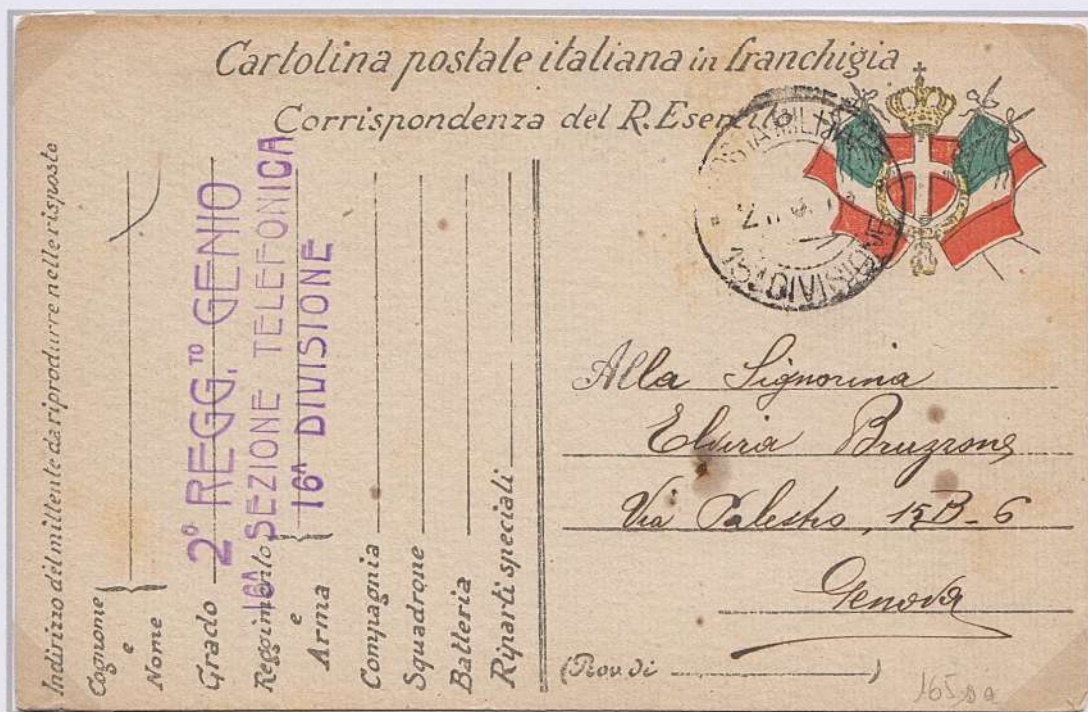 Cartolina postale italiana in franchigia
Corrispondenza del R. Esercito
POSTA MILITARE
15ª DIVISIONE
Indirizzo del mittente da riprodurre nelle risposte
Cognome
e
Nome
Grado
Reggimento
e
Arma
Compagnia
Squadrone
Batteria
Riparti speciali
2º REGG.TO GENIO
16ª SEZIONE TELEFONICA
16ª DIVISIONE
Alla Signorina
Elvira Bruzzone
Via Palestro, 15B-6
Genova
(Prov. di )